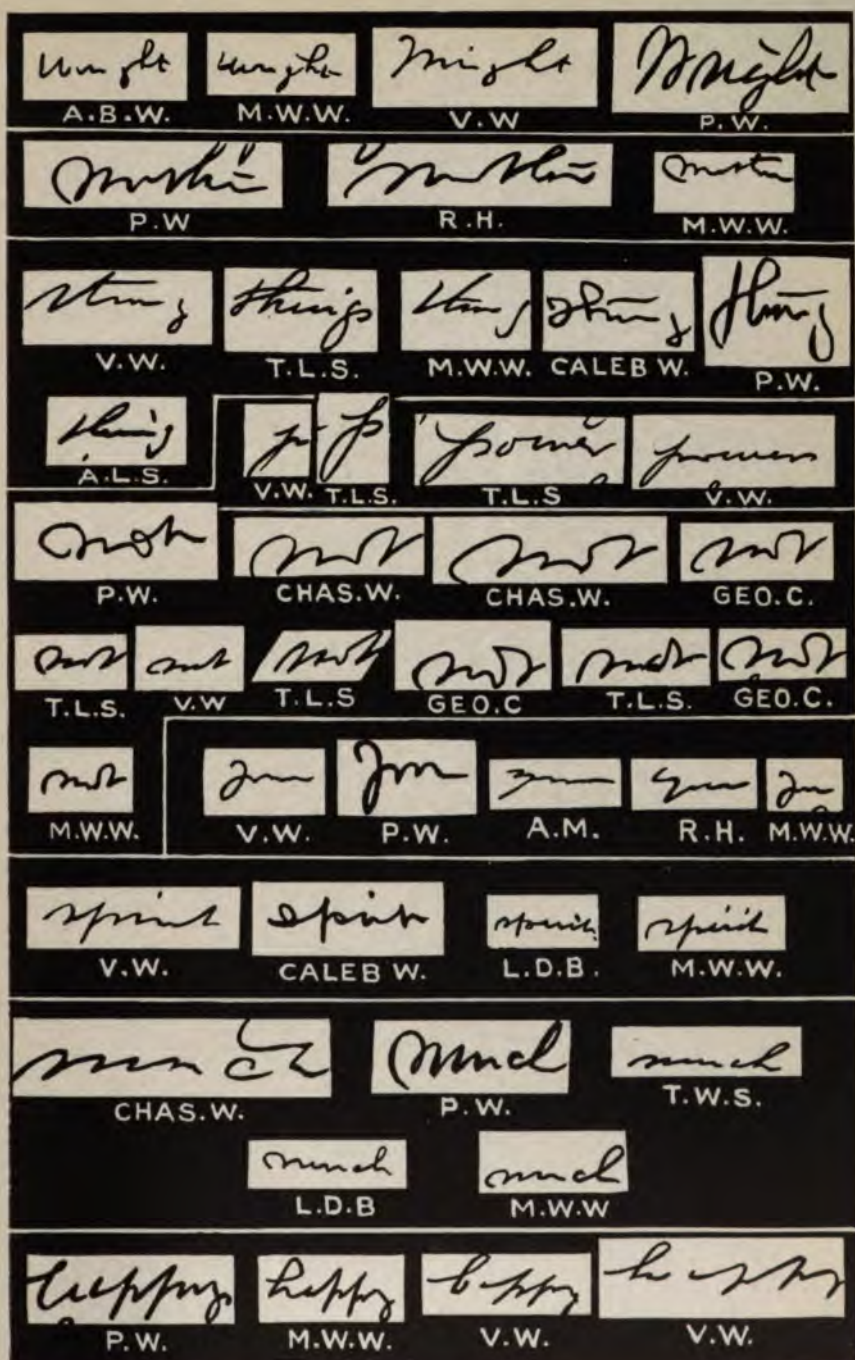 Wright Wright Wright Wright
A.B.W. M.W.W. V.W P.W.
P.W R.H. M.W.W.
thing things thing thing thing
V.W. T.L.S. M.W.W. CALEB W. P.W.
thing power powers
A.L.S. V.W. T.L.S. T.L.S V.W.
not not not not
P.W. CHAS.W. CHAS.W. GEO.C.
not not not not not not
T.L.S. V.W T.L.S GEO.C T.L.S. GEO.C.
not
M.W.W. V.W. P.W. A.M. R.H. M.W.W.
spirit spirit spirit spirit
V.W. CALEB W. L.D.B. M.W.W.
much much much
CHAS.W. P.W. T.W.S.
much much
L.D.B M.W.W
happy happy happy happy
P.W. M.W.W. V.W. V.W.